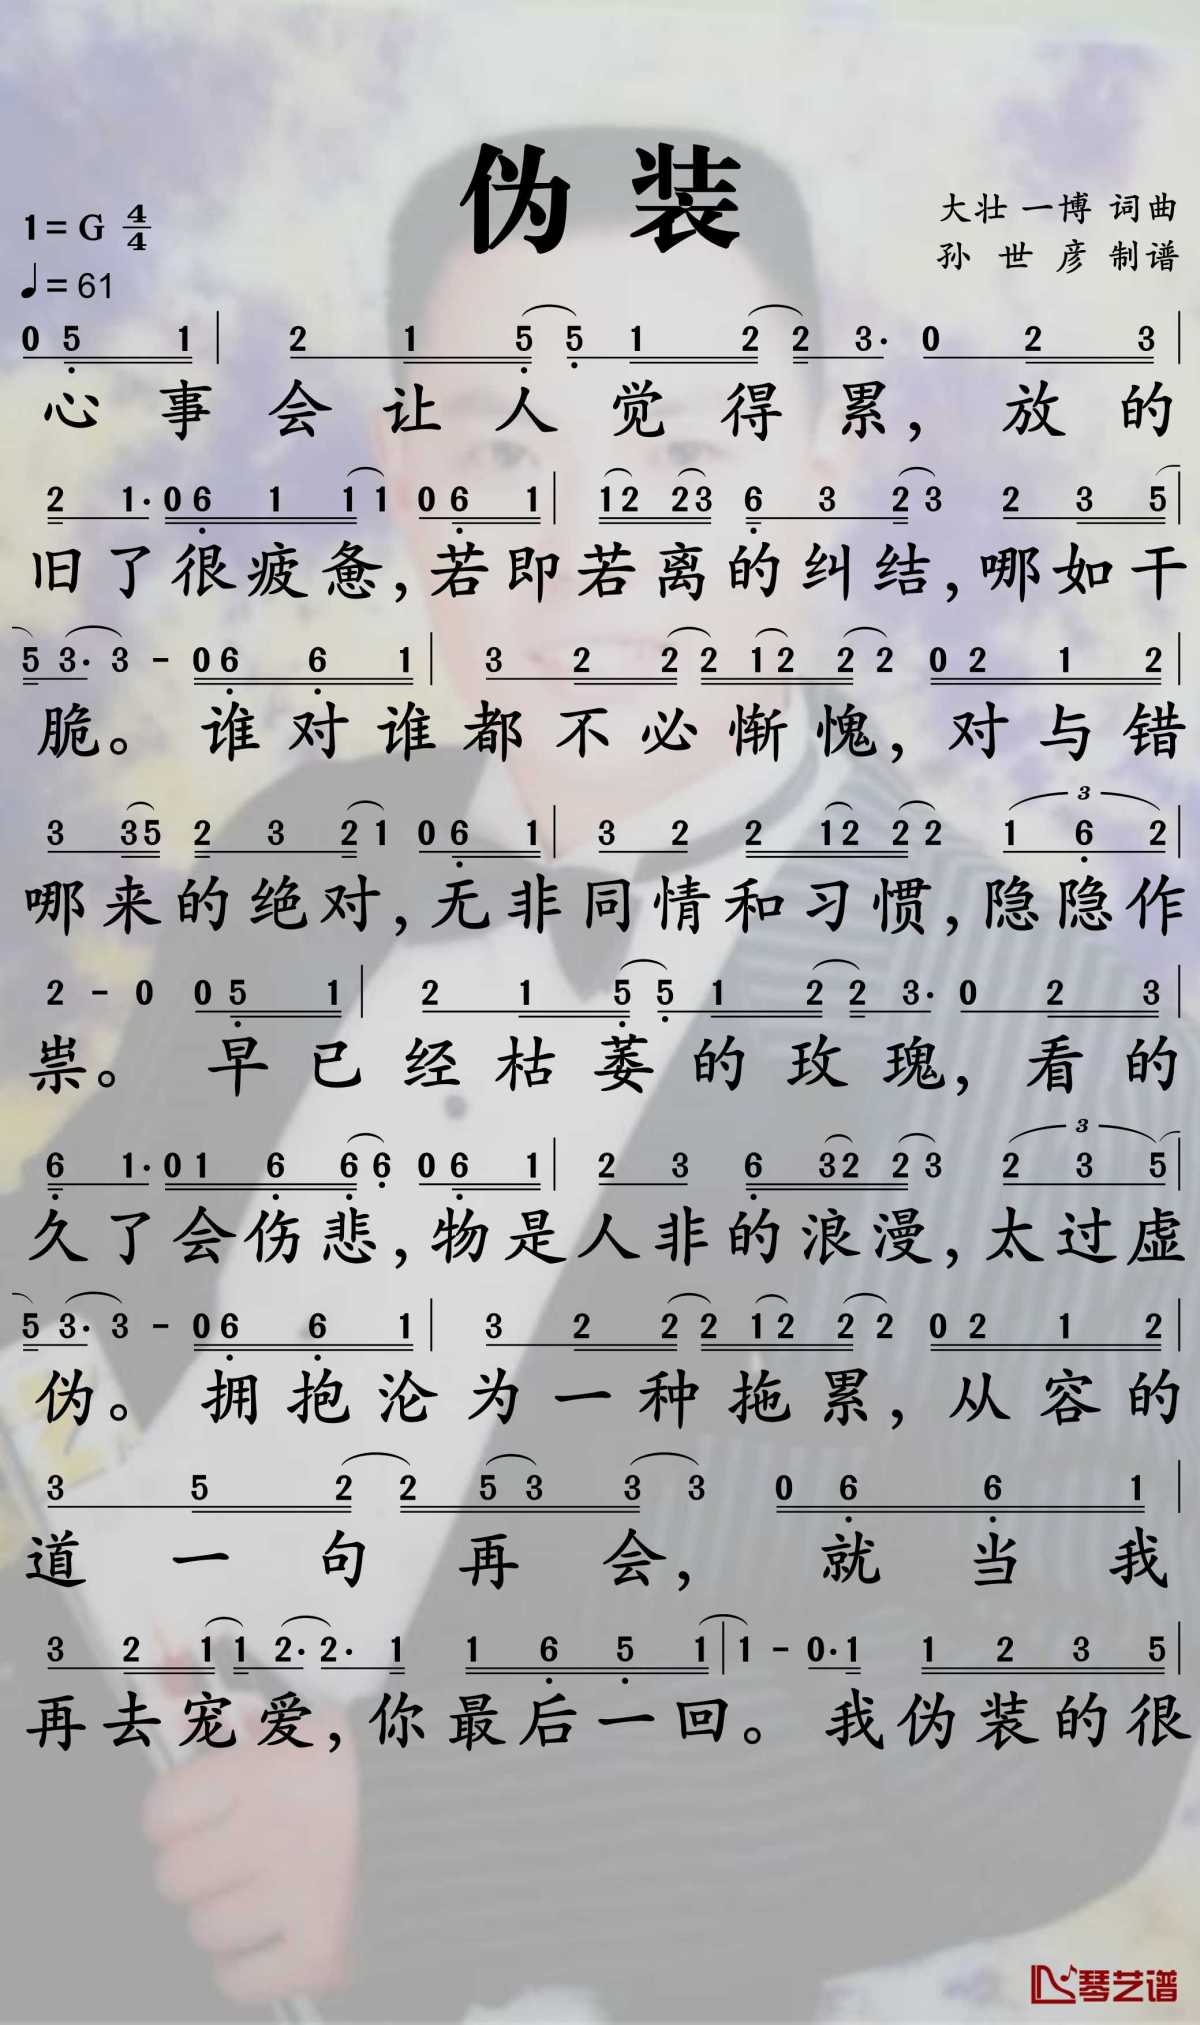 伪装
1=G 4/4
大壮 一博 词曲
孙世彦 制谱
♩=61
0 5 1 | 2 1 5 5 1 2 2 3· 0 2 3 |
心事会让人觉得累，放的
2 1· 0 6 1 1 1 0 6 1 | 1 2 2 3 6 3 2 3 2 3 5
旧了很疲惫，若即若离的纠结，哪如干
5 3· 3 - 0 6 6 1 | 3 2 2 2 1 2 2 2 0 2 1 2 |
脆。谁对谁都不必惭愧，对与错
3 3 5 2 3 2 1 0 6 1 | 3 2 2 1 2 2 2 3 1 6 2 |
哪来的绝对，无非同情和习惯，隐隐作
2 - 0 0 5 1 | 2 1 5 5 1 2 2 3· 0 2 3 |
祟。早已经枯萎的玫瑰，看的
6 1· 0 1 6 6 6 0 6 1 | 2 3 6 3 2 2 3 3 2 3 5 |
久了会伤悲，物是人非的浪漫，太过虚
5 3· 3 - 0 6 6 1 | 3 2 2 2 1 2 2 2 0 2 1 2 |
伪。拥抱沦为一种拖累，从容的
3 5 2 2 5 3 3 3 0 6 6 1 |
道一句再会，就当我
3 2 1 1 2· 2· 1 1 6 5 1 | 1 - 0· 1 1 2 3 5 |
再去宠爱，你最后一回。我伪装的很
琴艺谱